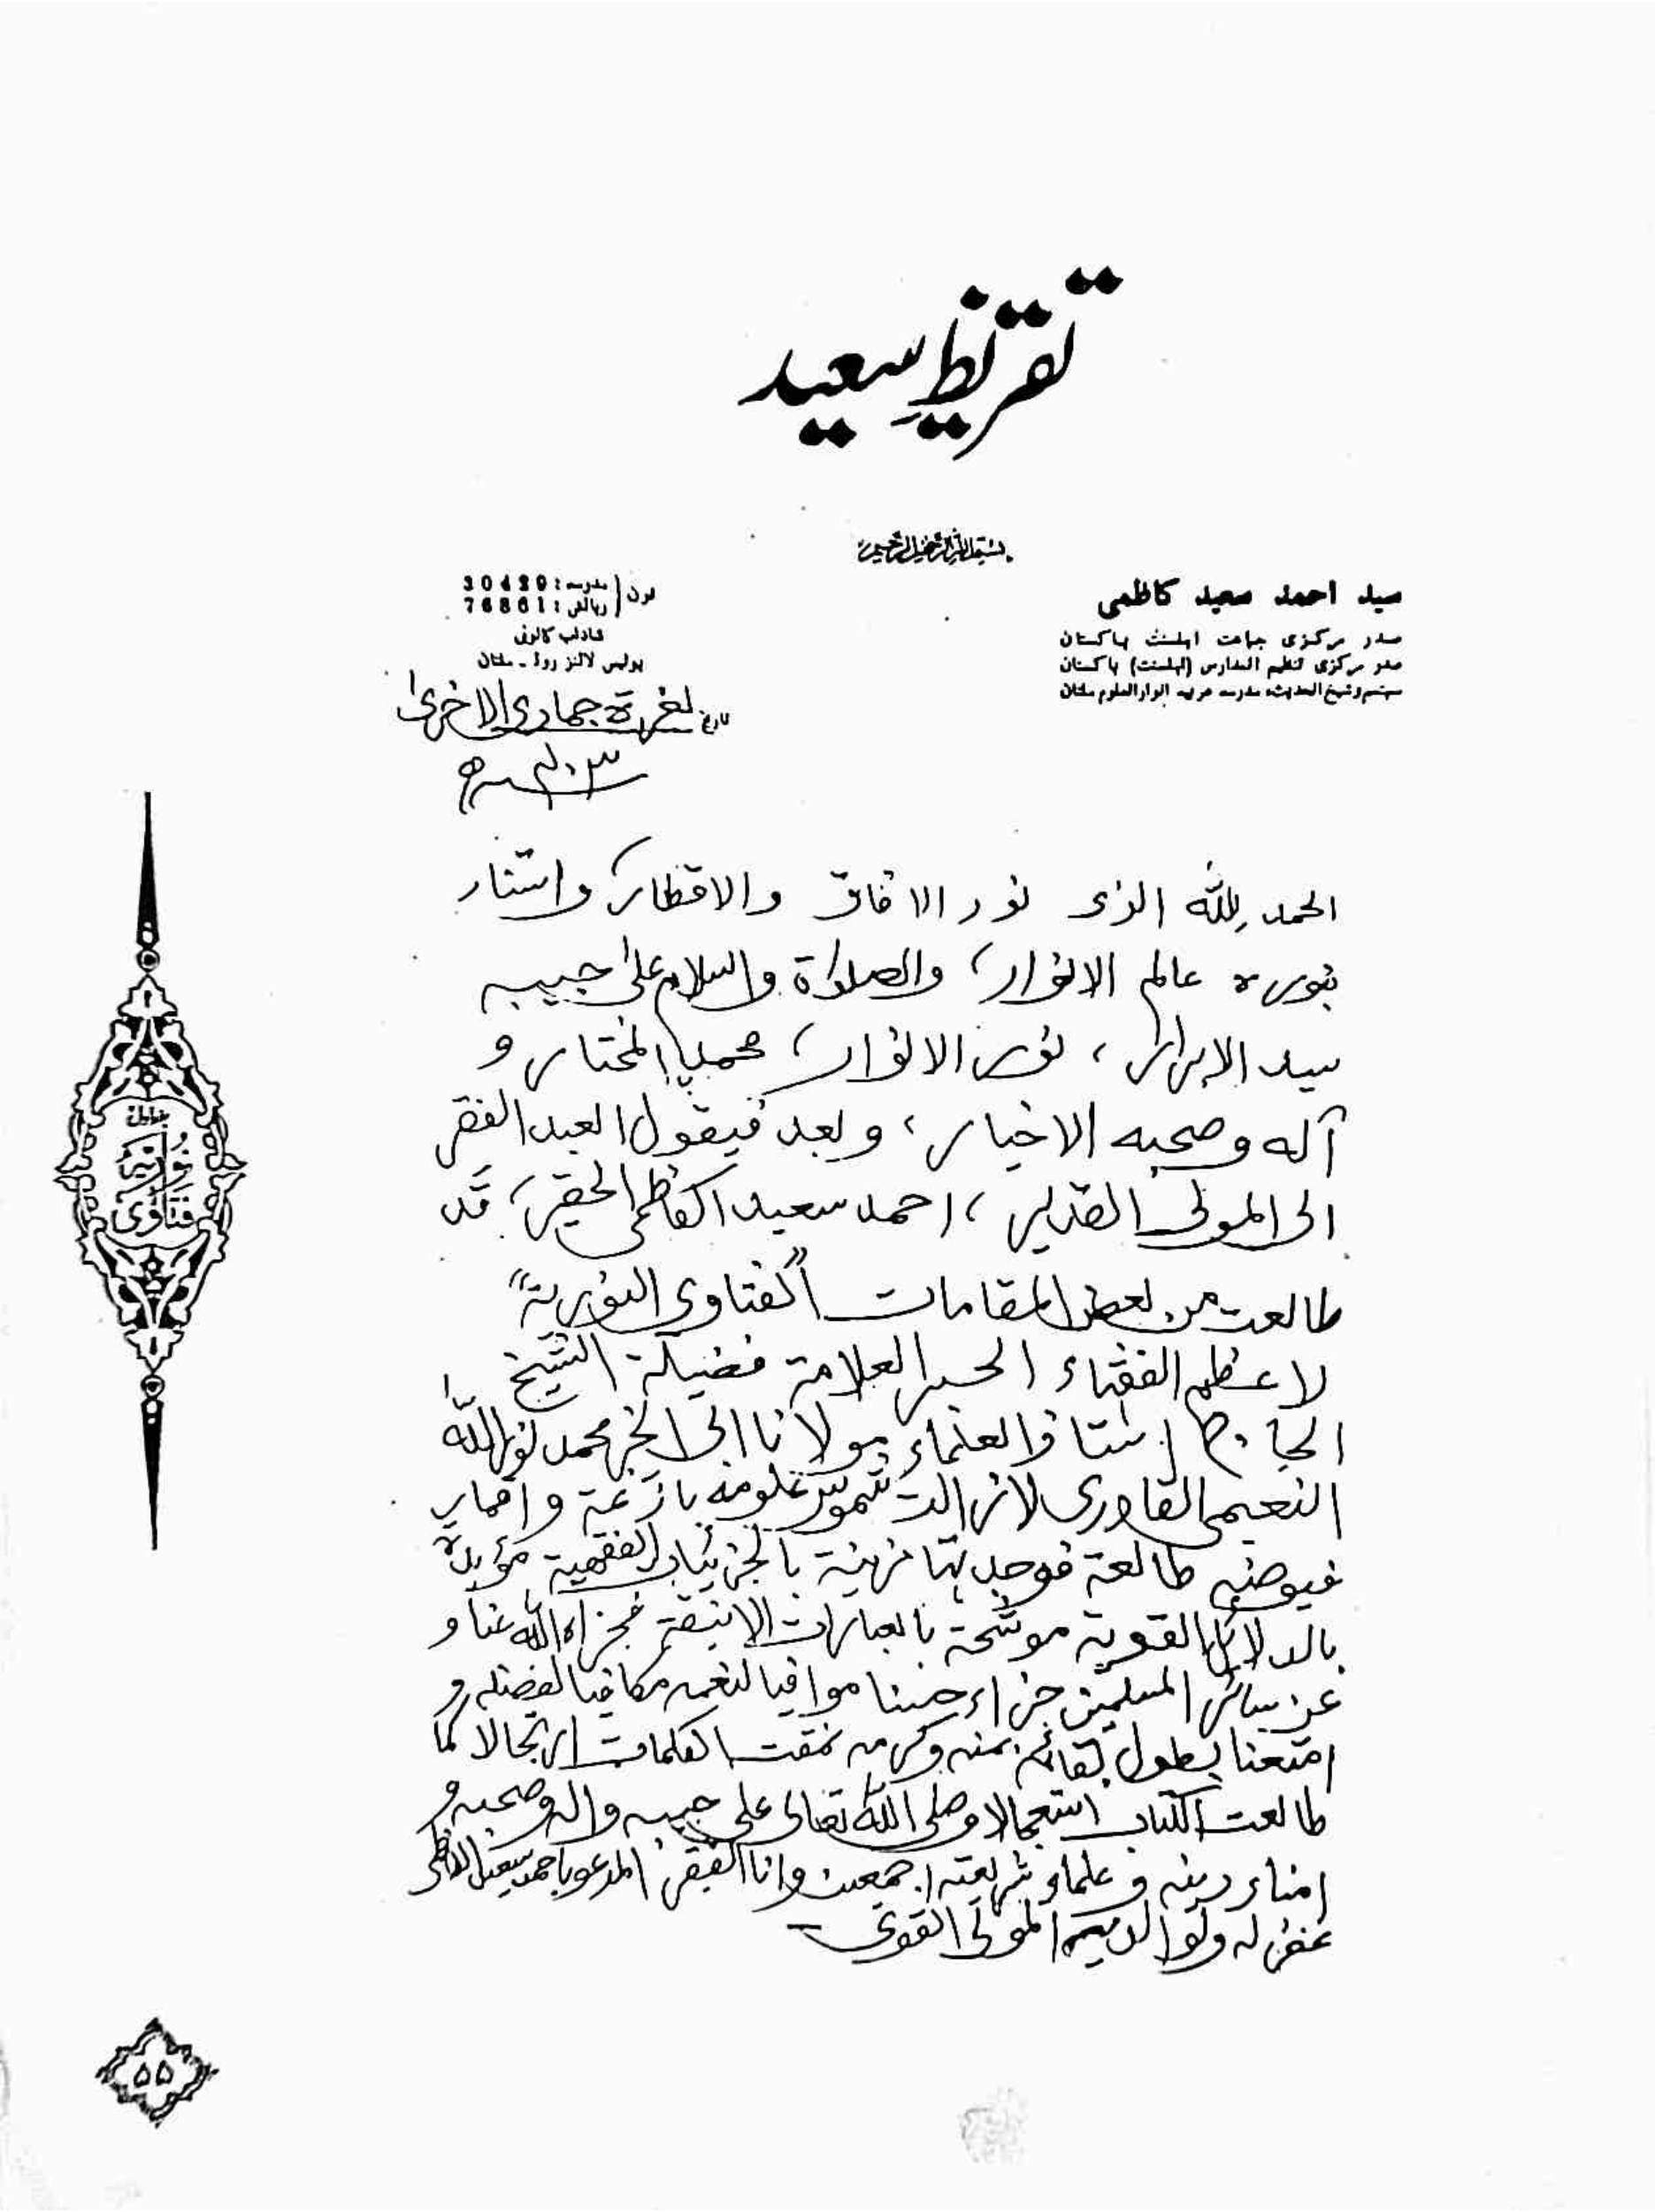 تقریظِ سعید
بسم الله الرحمن الرحیم
سید احمد سعید کاظمی
صدر مرکزی جماعت اہلسنت پاکستان
صدر مرکزی تنظیم المدارس (اہلسنت) پاکستان
مہتمم و شیخ الحدیث مدرسہ عربیہ انوار العلوم ملتان
فون مدرسہ : 30420
رہائش : 76861
شاداب کالونی
پولیس لائنز روڈ - ملتان
تاریخ لغرة جمادی الاخریٰ
۱۴۰۳ھ
الحمد لله الذی نور الافاق والاقطار، واستنار
بنوره عالم الانوار، والصلوٰة والسلام علیٰ حبیبه
سید الابرار، نور الانوار، محمدٍ المختار و
آله وصحبه الاخیار، وبعد فیقول العبد الفقر
الی المولی القدیر، احمد سعید الکاظمی الحقیر، قد
طالعت من بعض المقامات "الفتاوی النوریة"
لاعظم الفقهاء الحبر العلامة فضیلة الشیخ
الحاج استاذ العلماء مولانا ابی الخیر محمد نور الله
النعیمی القادری لازالت شموس علومه بازغة و اقمار
فیوضه طالعة فوجدتها مزینة بالجزئیات الفقهیة مؤیدة
بالدلائل القویة موشحة بالعبارات الانیقة فجزاه الله عنا و
عن سائر المسلمین جزاء حسنا موافیا لنعمه مکافیا لفضله و
امتعنا بطول بقائه بمنه وکرمه نمقت الکلمات ارتجالا کما
طالعت الکتاب استعجالا وصلی الله تعالی علی حبیبه واله وصحبه و
امناء دینه و علماء شریعته اجمعین وانا الفقیر المدعو باحمد سعید الکاظمی
غفر له ولوالدیه المولی القوی
فتاویٰ نوریہ
۵۵